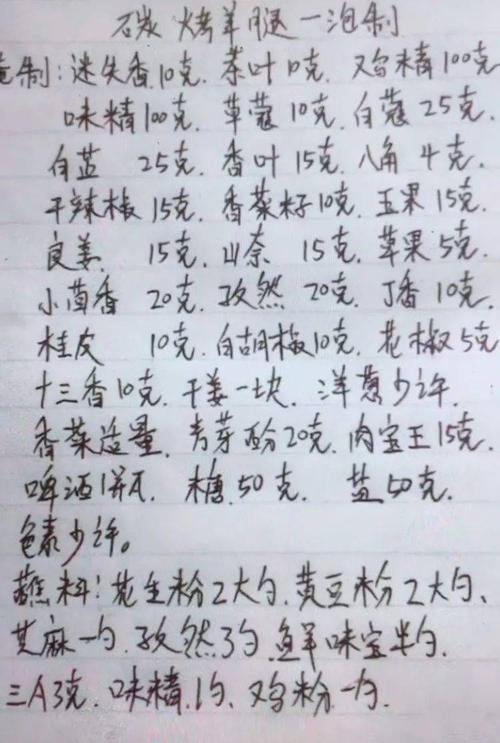 碳烤羊腿一泡制
腌制:迷失香.10克.茶叶10克.双鸡精100克
味精100克.草蔻10克.白蔻25克.
白芷 25克.香叶15克.八角4克.
干辣椒15克.香菜籽10克.玉果15克.
良姜 15克.山奈 15克.草果5克.
小茴香 20克.孜然 20克.丁香10克.
桂皮 10克.白胡椒10克.花椒5克
十三香10克.干姜一块.洋葱少许.
香菜适量.麦芽酚20克.肉宝王15克.
啤酒1瓶.糖.50克. 盐50克.
色素少许。
蘸料:花生粉2大勺.黄豆粉2大勺、
芝麻一勺.孜然3勺.鲜味宝半勺.
三A3克.味精.1勺.鸡粉一勺.